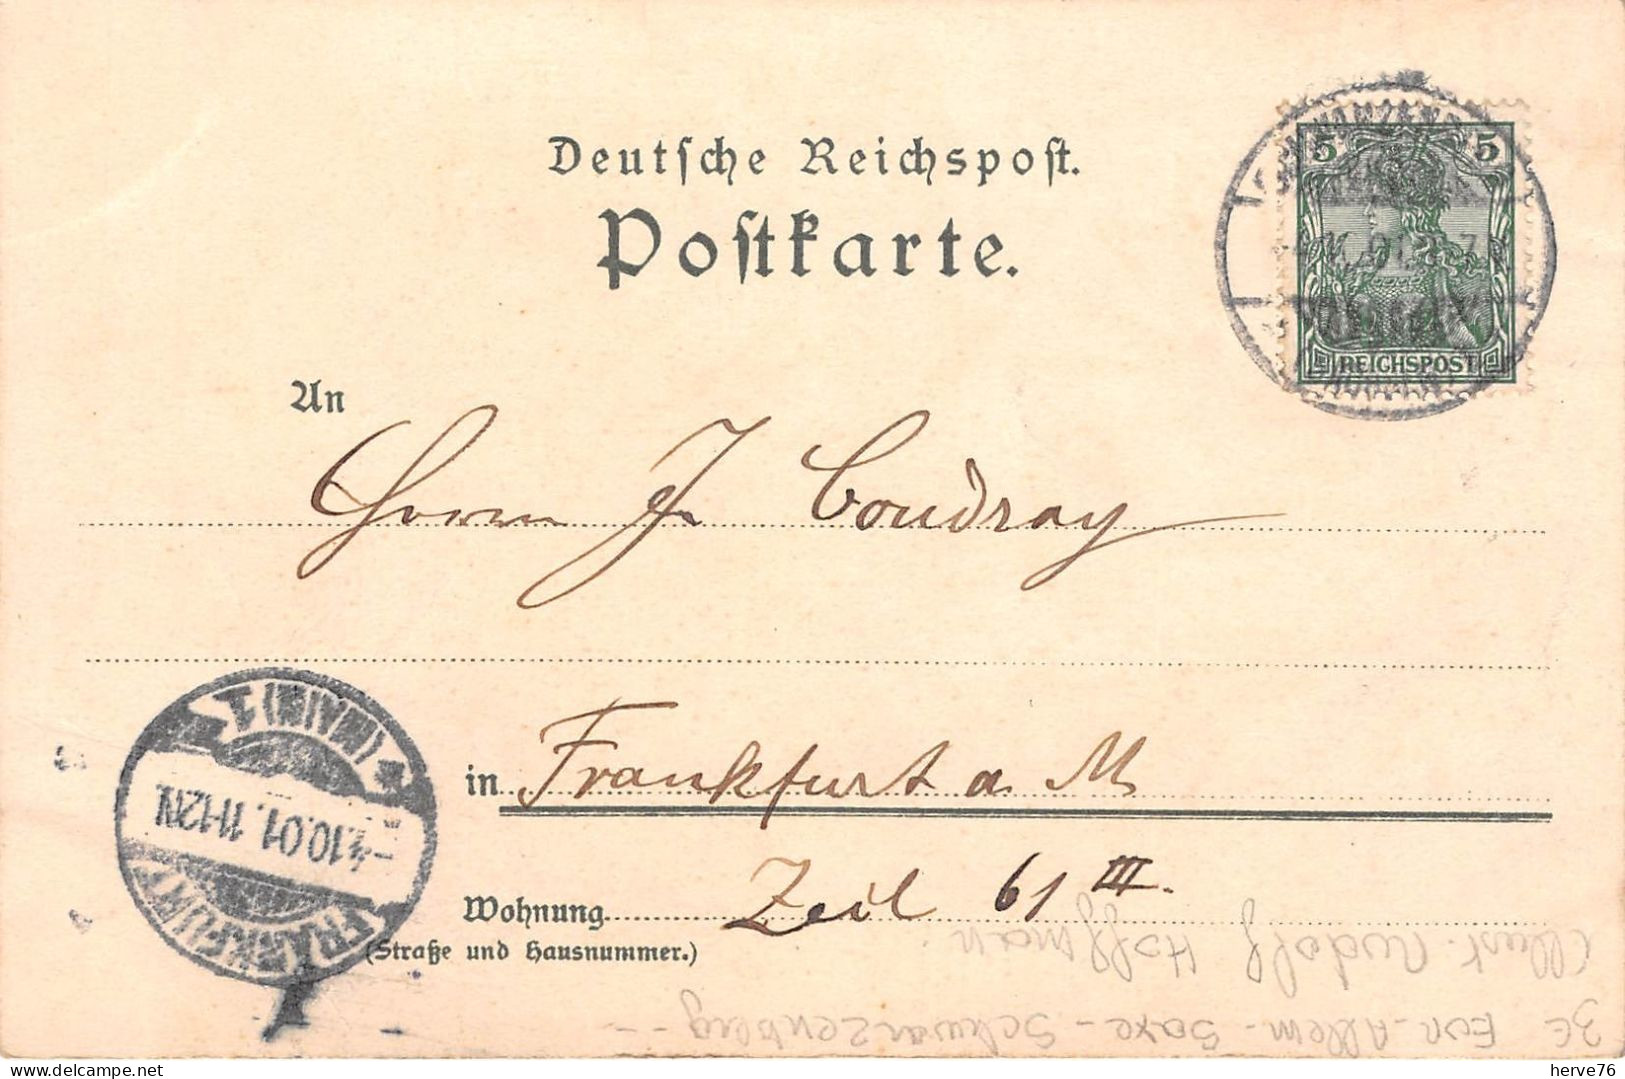 Deutsche Reichspost.
Postkarte.
5 5
REICHSPOST
An
Herrn J. Coudray
in Frankfurt a. M
Wohnung Zeil 61 III.
(Straße und Hausnummer.)
FRANKFURT
10.01. 11-12N.
(MAIN) 1
Illust. Rudolf Hoffman.
3€ Eur-Allem-Saxe-Schwarzenberg--
herve76